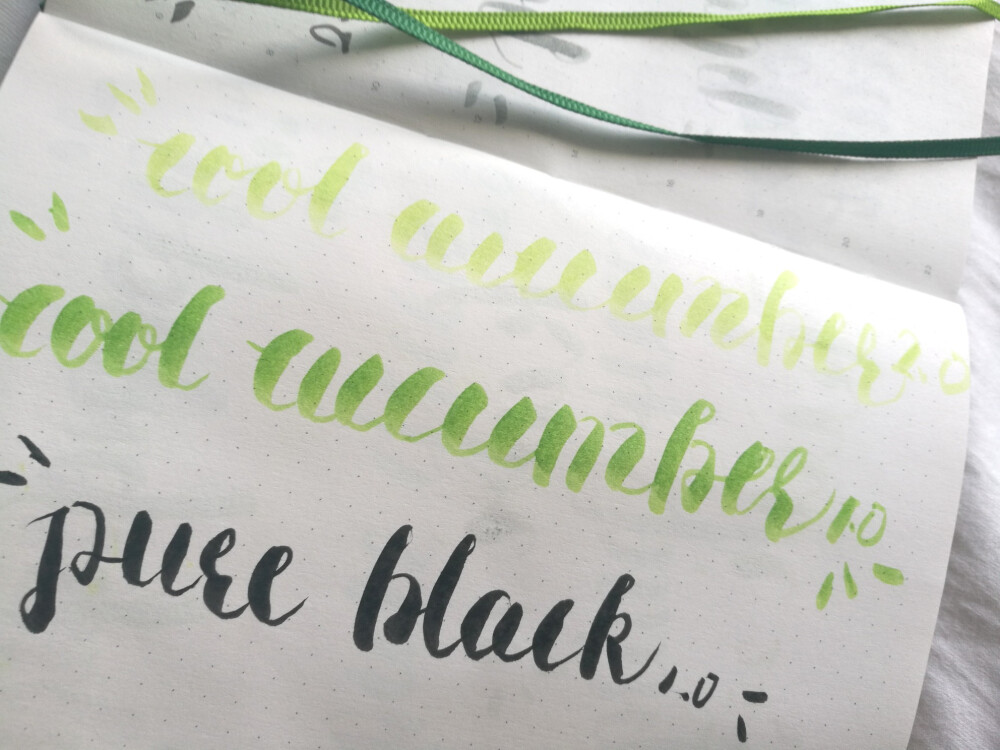 cool cucumber 2.0
cool cucumber 1.0
pure black 1.0